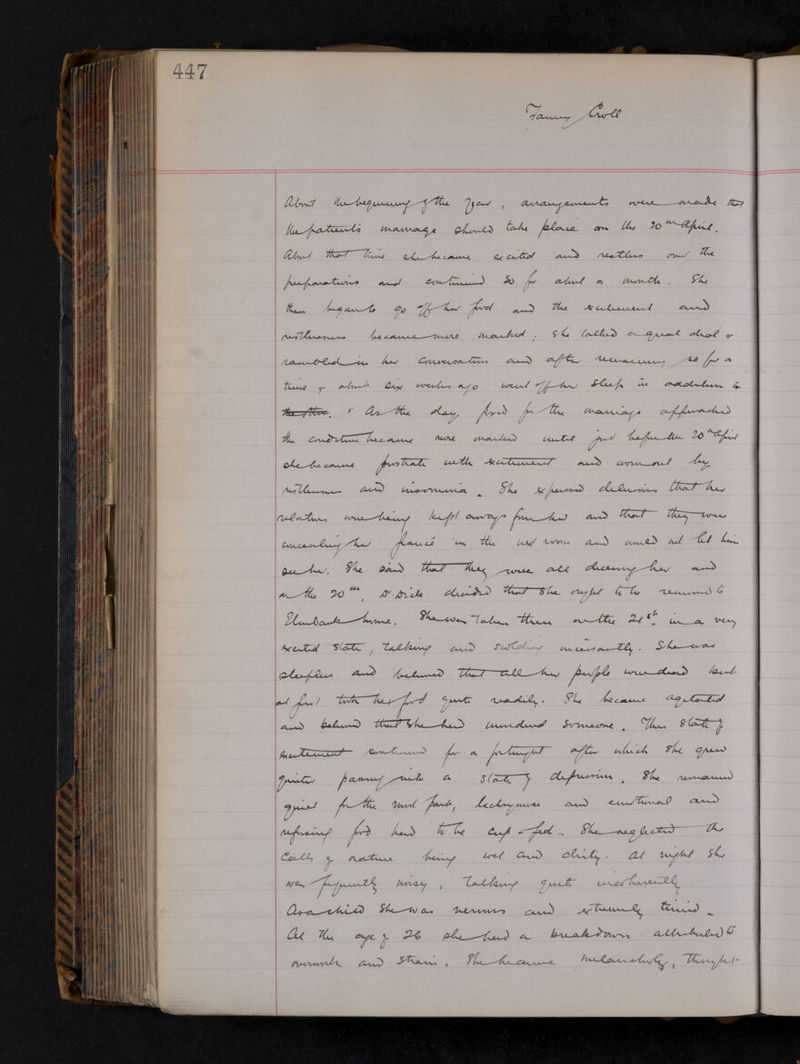 447
Fanny Croll
About the beginning of the Year, arrangements were made that
the patient's marriage should take place on the 20th April.
About that time she became excited and restless over the
preparations and continued so for about a month. She
then began to go off her food and the excitement and
restlessness became more marked; she talked a great deal &
rambled in her conversation and after remaining so for a
time & about six weeks ago went off her sleep in addition to
& As the day fixed for the marriage approached
the condition became more marked until just before the 20th April
she became prostrate with excitement and worn out by
restlessness and insomnia. She expressed delusions that her
relatives were being kept away from her and that they were
concealing her fiancé in the next room and would not let him
see her. She said that they were all deceiving her and
on the 20th, Dr Dick decided that she ought to be removed to
Elmbank home. She was taken there on the 21st in a very
excited state, talking and scolding incessantly. She was
sleepless and believed that all her people were dead but
at first took her food quite readily. She became agitated
and believed that she had murdered someone. This state of
excitement continued for a fortnight after which she grew
quieter passing into a state of depression. She remained
quiet for the most part, lachrymose and emotional and
refusing food had to be cup-fed. She neglected the
calls of nature being wet and dirty. At night she
was frequently noisy, talking quite incoherently.
As a child she was nervous and extremely timid.
At the age of 26 she had a breakdown attributed to
overwork and strain. She became melancholy, thought